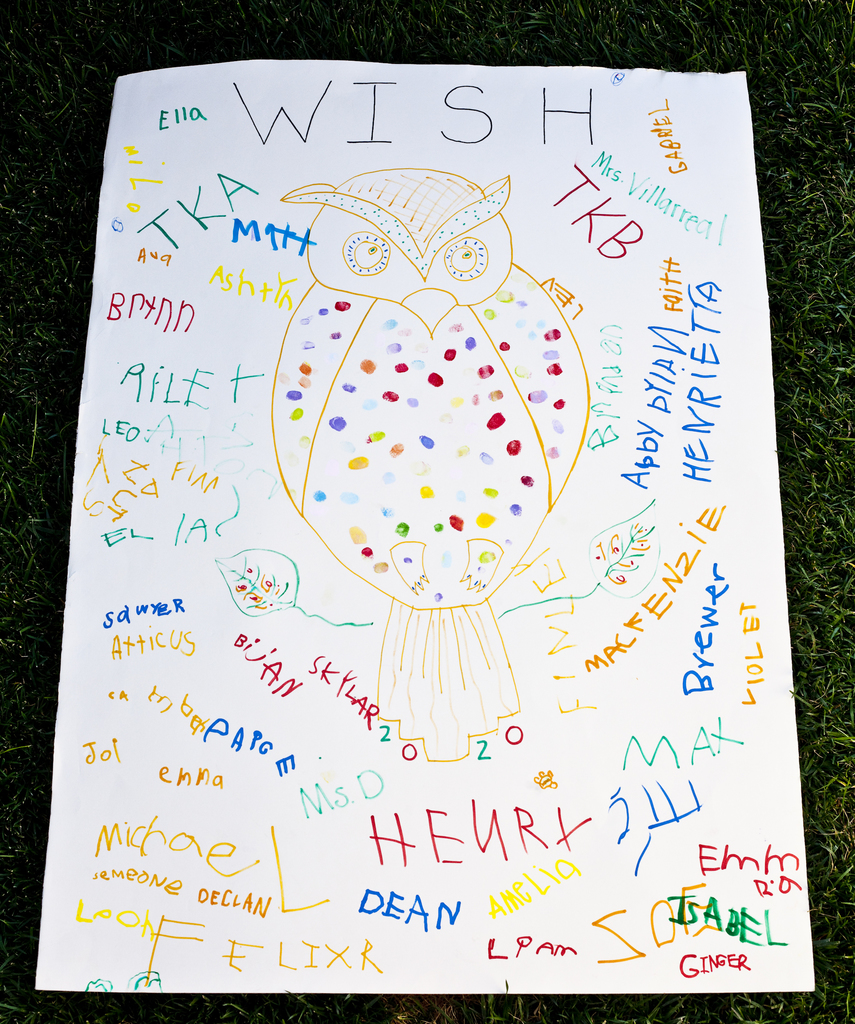 WISH
Ella
GABRIEL
Milo
Mrs. Villarreal
TKA
TKB
Matt
Ava
Ashtyn
FAITH
LEV
BrYnn
HENRIETTA
DYLAN
Abby
RILEY
LEO
FINN
ELIA
MACKENZIE
FINLEY
Brewer
VIOLET
SAWYER
ATTICUS
BIJAN
SKYLAR
PAIGE
2020
Joi
emma
Ms. D
MAX
HENRY
MichaeL
someone
DECLAN
Emm
DEAN
AmeLia
ISABEL
FELIXR
LIam
GINGER